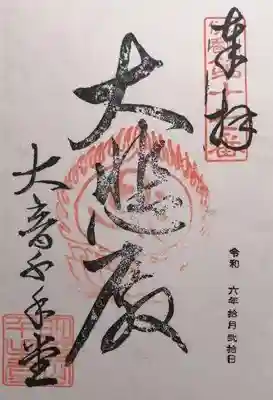 奉拝
令和 六年拾月弐拾日
大悲殿
大音千手堂